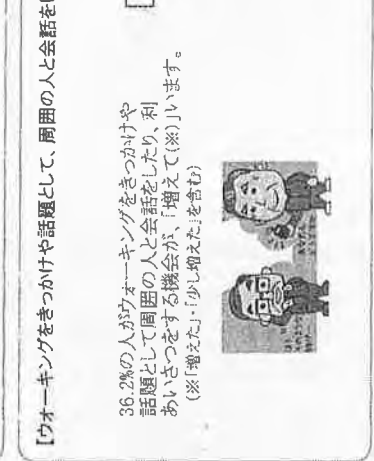 【ウォーキングをきっかけや話題として、周囲の人と会話を
36.2%の人がウォーキングをきっかけや
話題として周囲の人と会話をしたり、利
あいさつをする機会が、「増えて(※)」います。
(※「増えた」・「少し増えた」を含む)